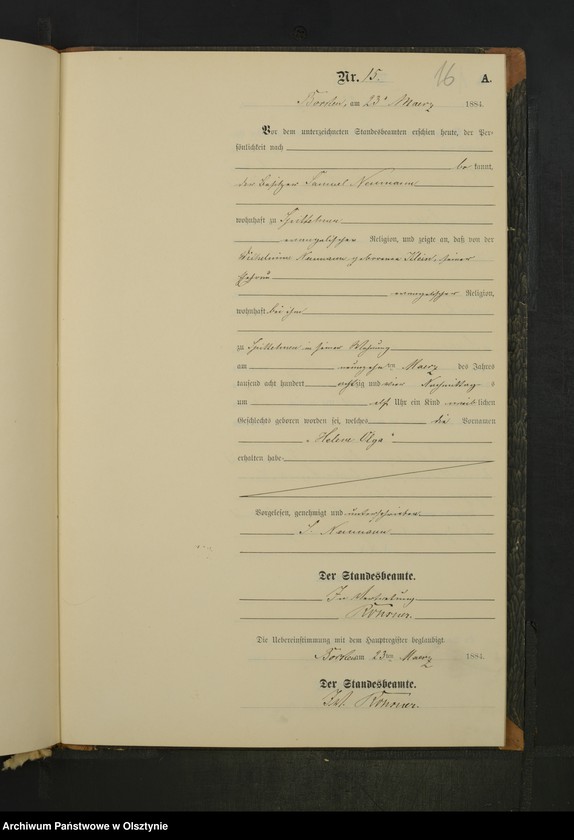 Nr. 15. 16 A.
am 23t Maerz 1884.
Vor dem unterzeichneten Standesbeamten erschien heute, der Per-
sönlichkeit nach
be kannt,
der Besitzer Samuel Neumann
wohnhaft zu
evangelischer Religion, und zeigte an, daß von der
Wilhelmine Neumann geborenen Klein, seiner
Ehefrau
evangelischer Religion,
wohnhaft bei ihm
zu in seiner Wohnung
am neunzehnten Maerz des Jahres
tausend acht hundert achtzig und vier Nachmittag s
um elf Uhr ein Kind weib lichen
Geschlechts geboren worden sei, welches die Vornamen
„Helene Olga“
erhalten habe.
Vorgelesen, genehmigt und unterschrieben
S. Neumann
Der Standesbeamte.
In Vertretung
Die Uebereinstimmung mit dem Hauptregister beglaubigt.
am 23ten Maerz 1884.
Der Standesbeamte.
Archiwum Państwowe w Olsztynie